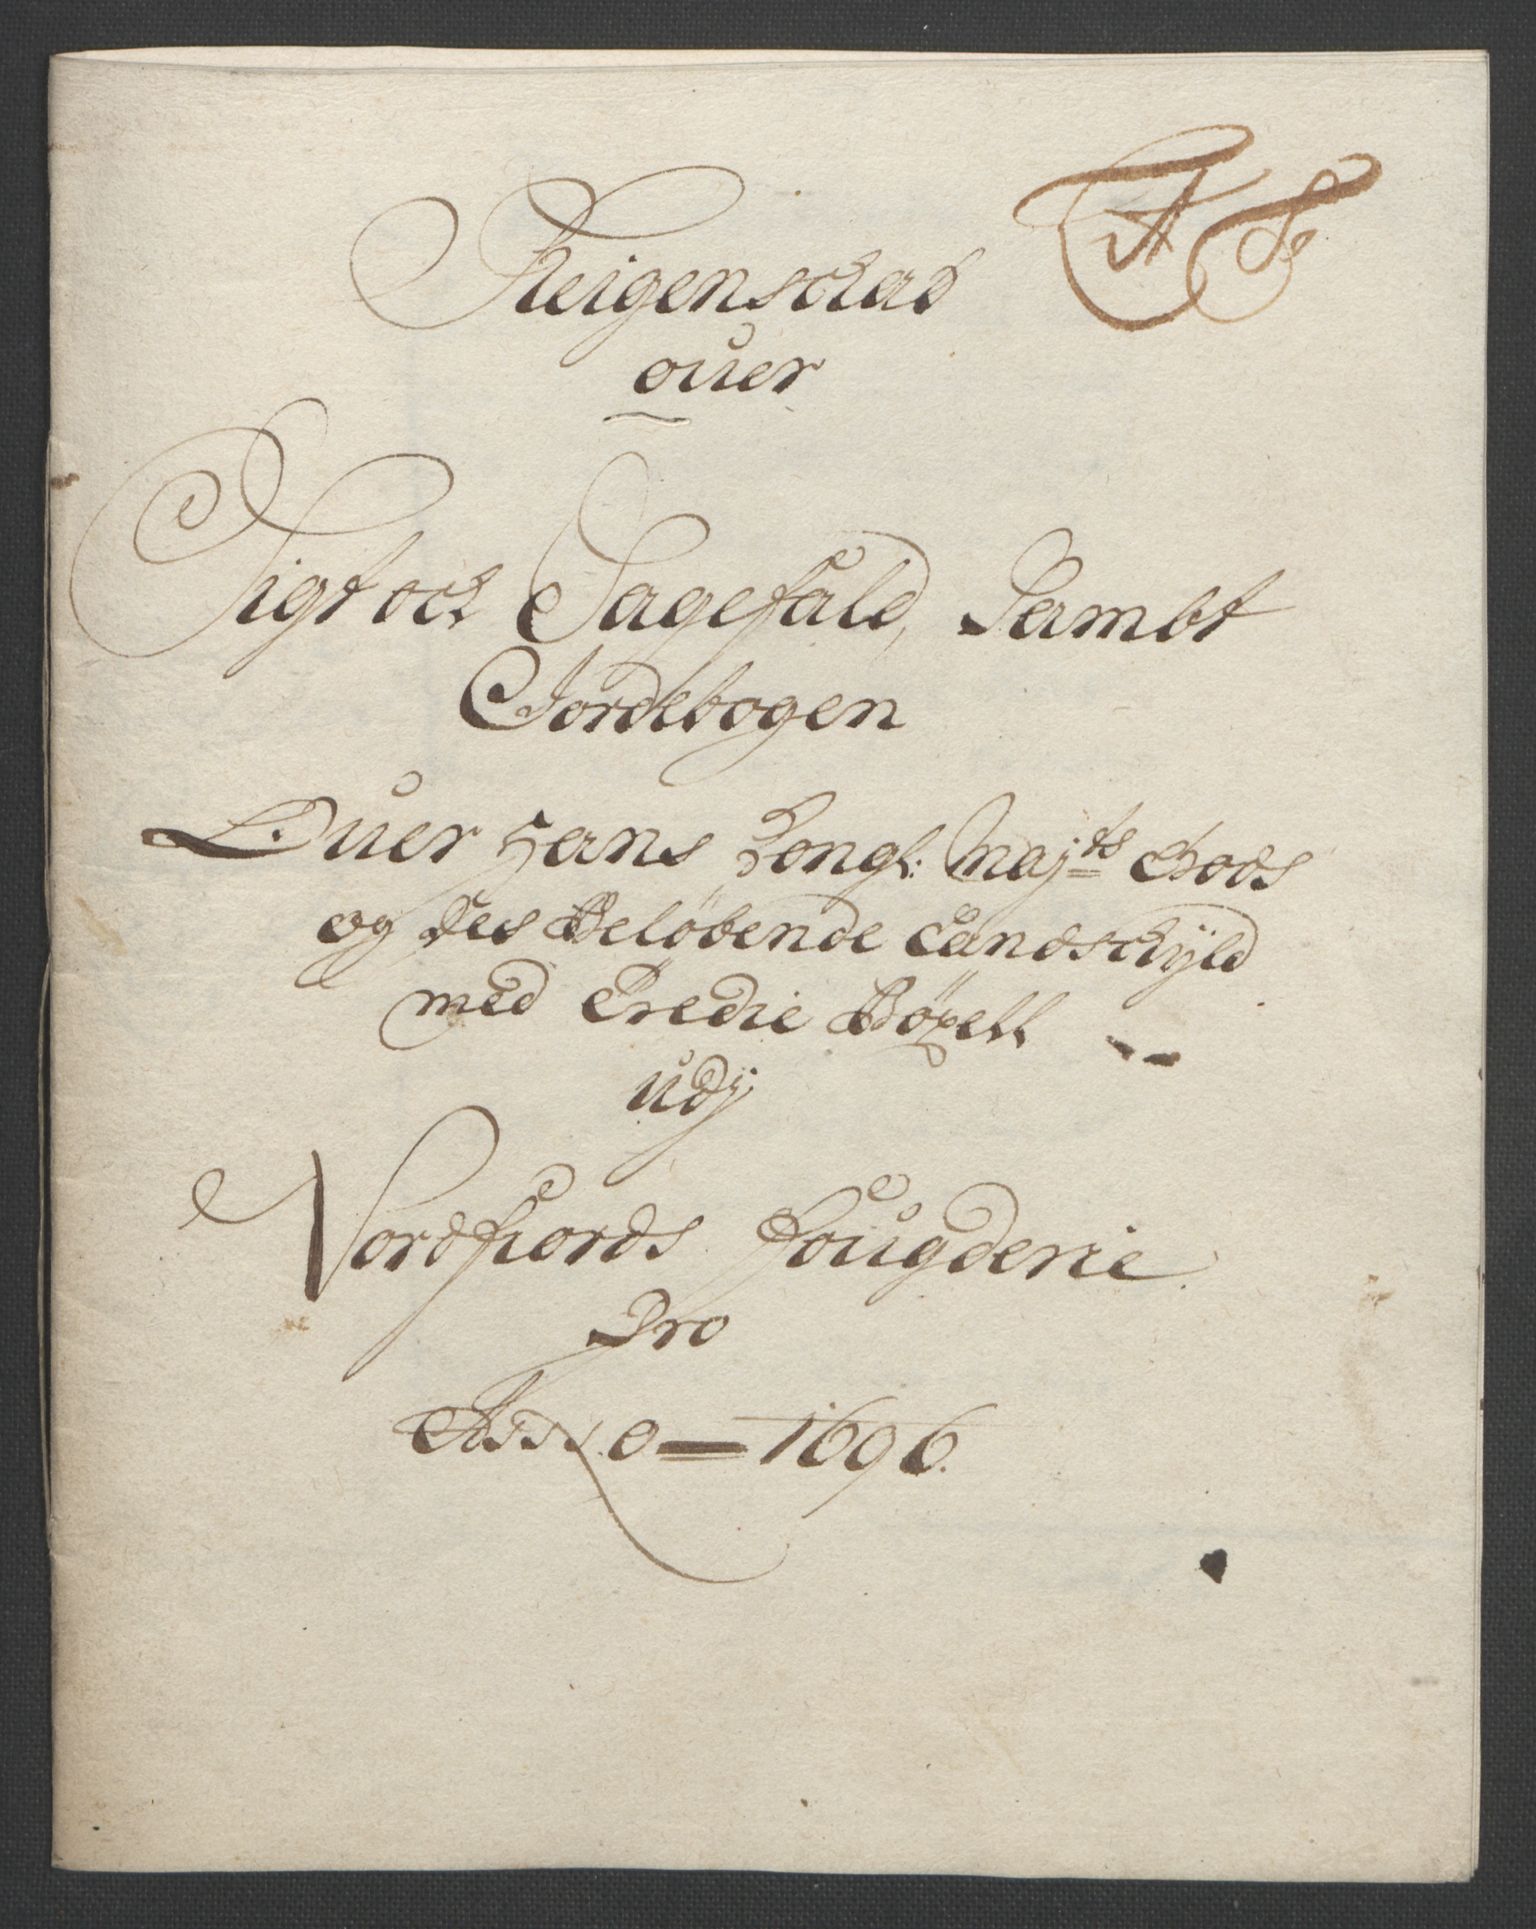 Reigenschab
ouer
Sigt och Sagefald, Sambt
Jordebogen
Ouer Hans Kongl: Mayts Gods
og des Beløbende Landschyld
med Tredie Bøxell
udj
Nordfiords Fougderie
Pro
Anno 1696.